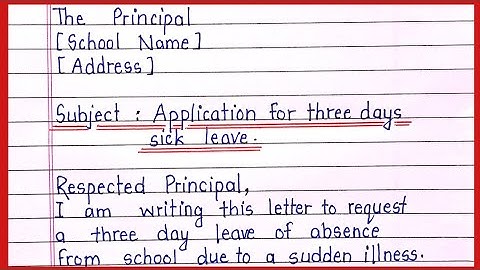 The Principal
[School Name]
[Address]
Subject : Application for three days
sick leave.
Respected Principal,
I am writing this letter to request
a three day leave of absence
from school due to a sudden illness.